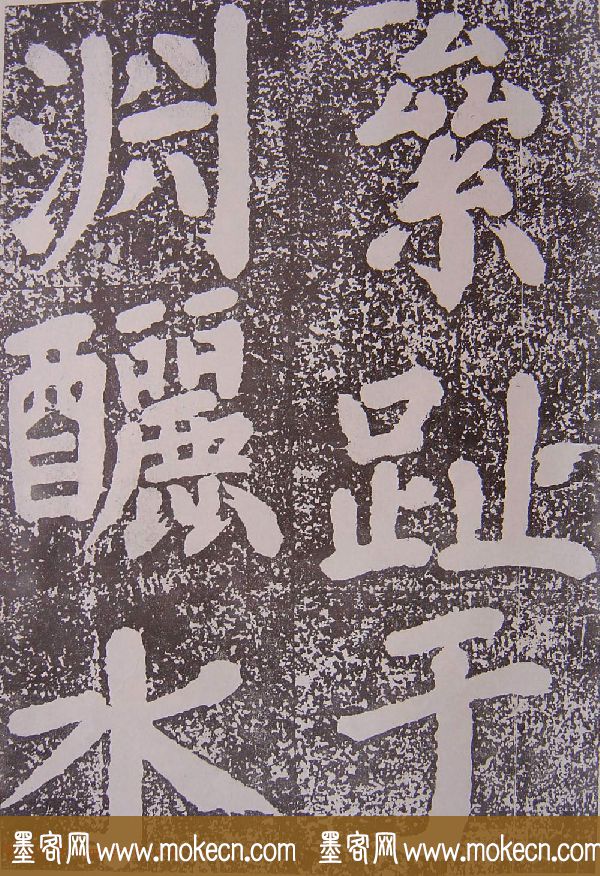 絫趾于
淵釃水
墨客网 www.mokecn.com 墨客网 www.mokecn.com